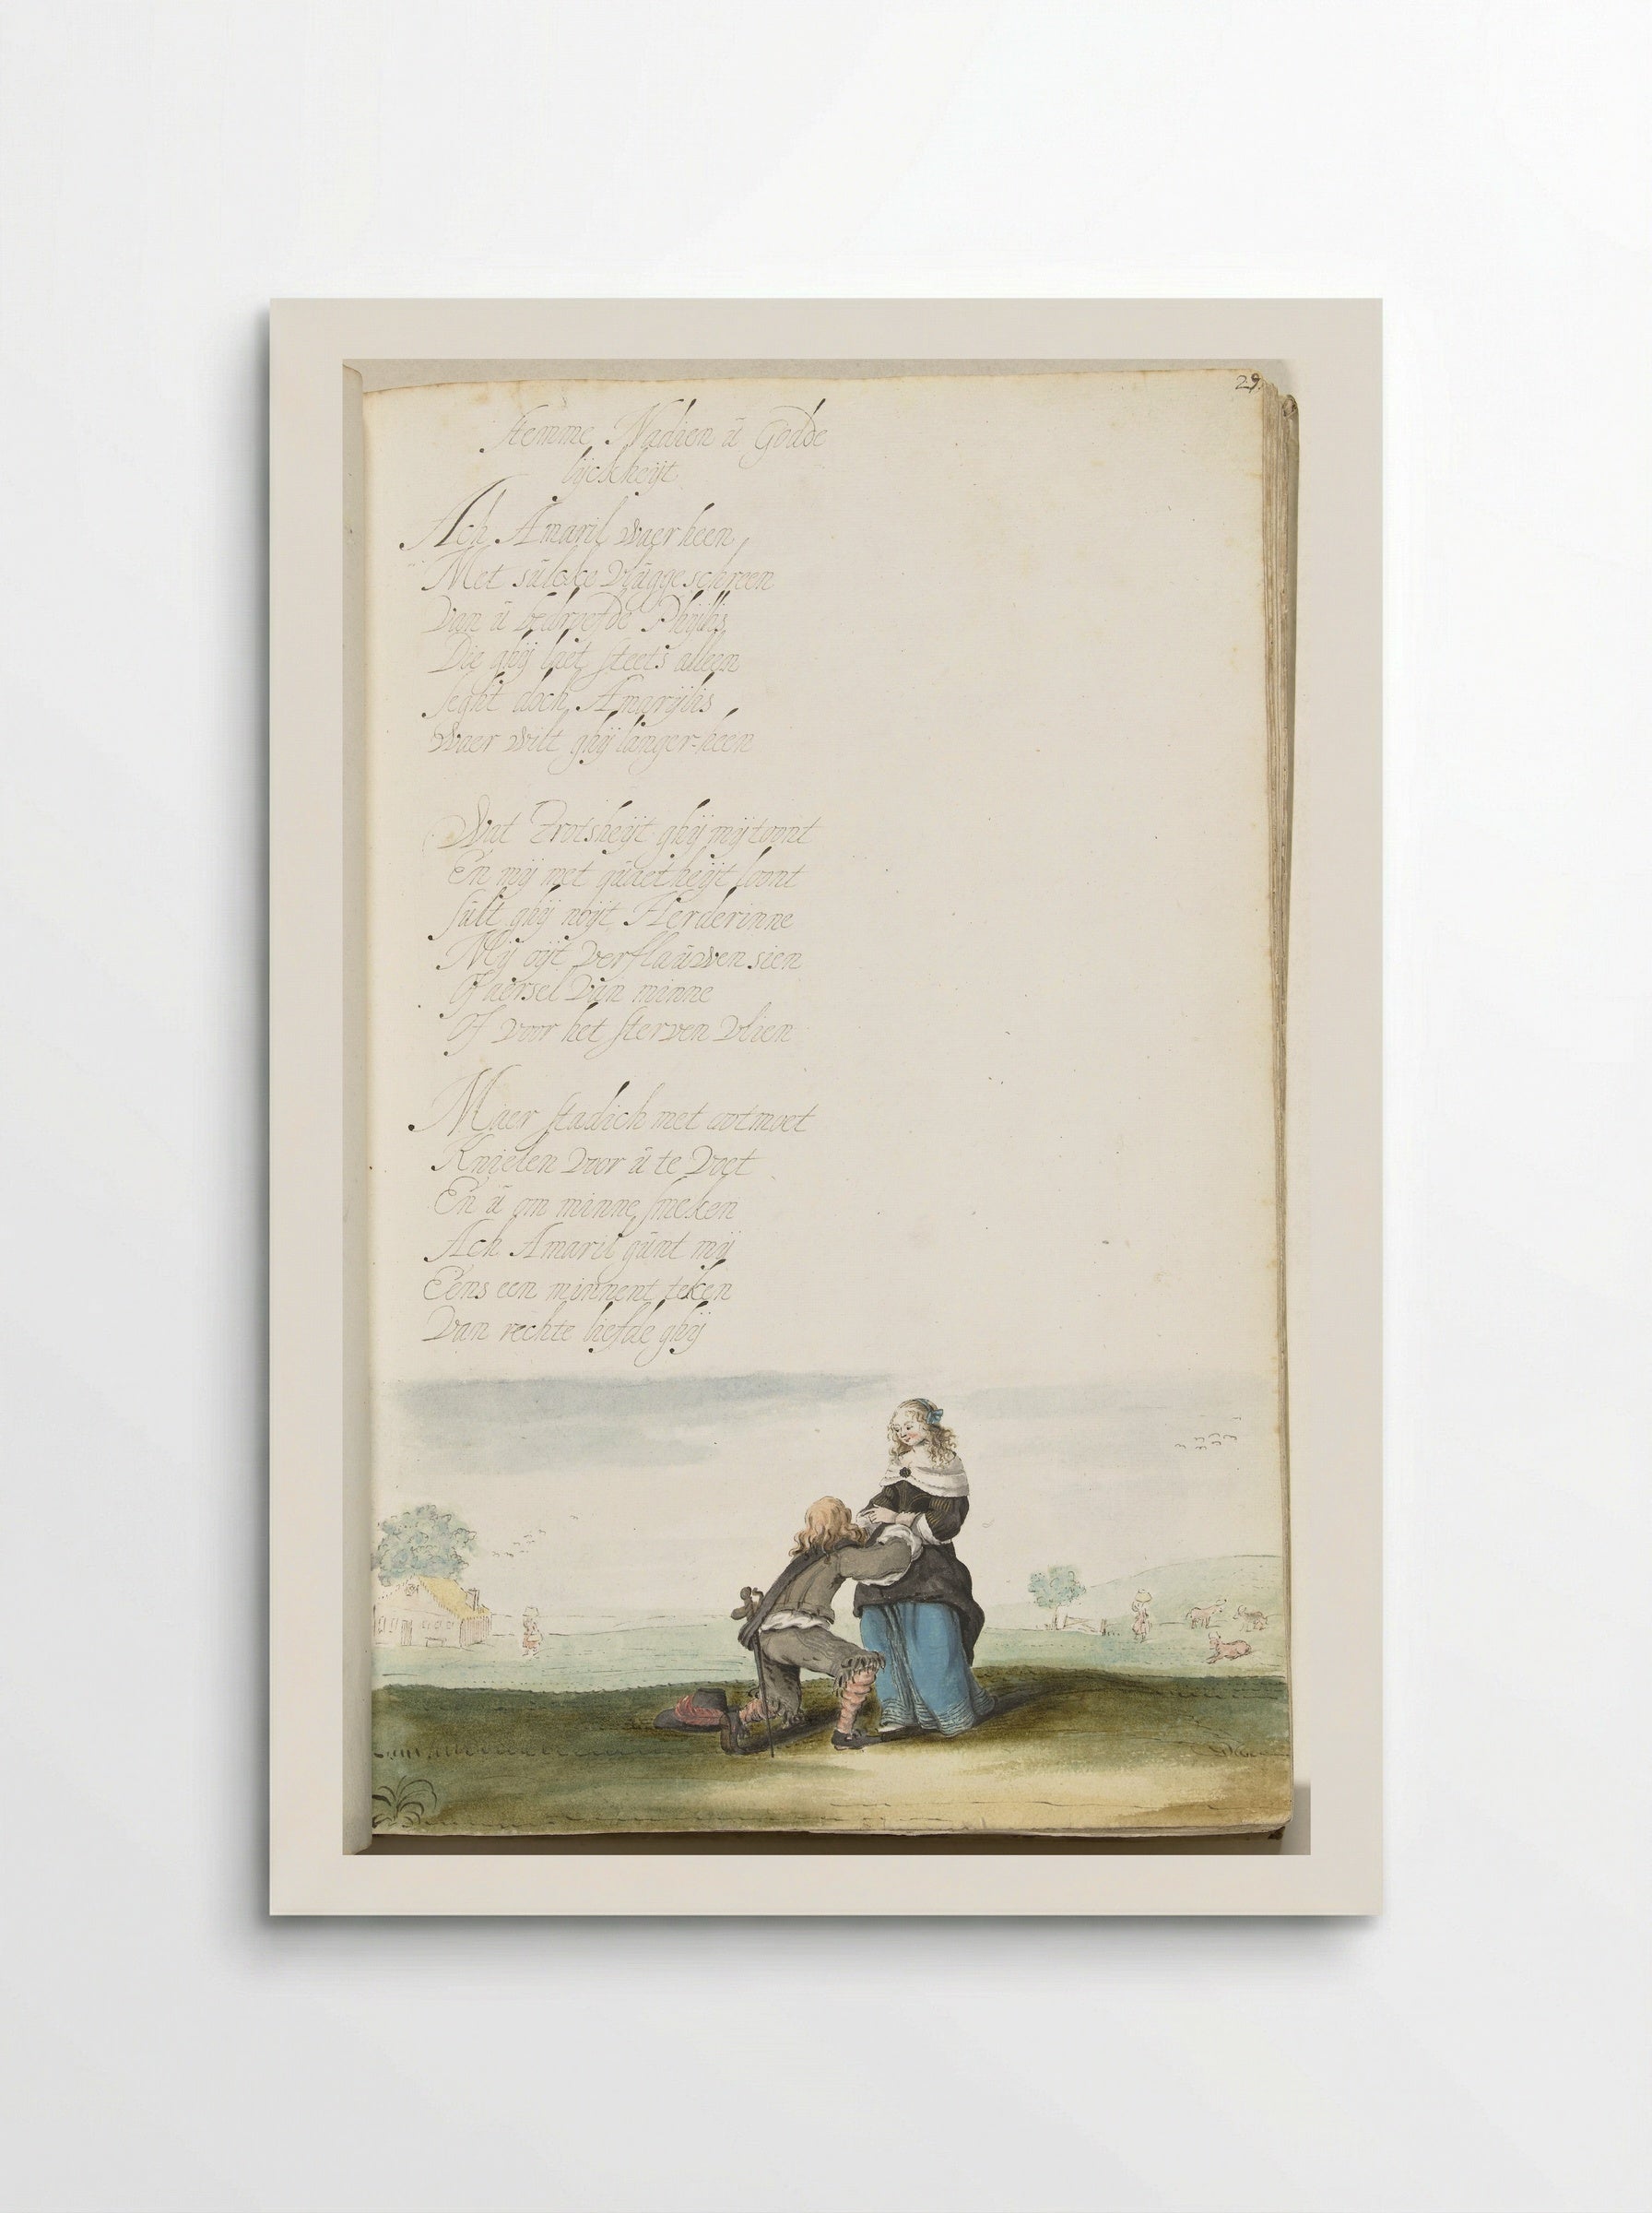 29
Stemme Nadien ú Godde
lijckheijt
Ach Amaril waer heen,
Met súlcke vlúgge schreen
Van ú bedroefde Phijlis
Die ghij laet steets alleen
Seght doch Amarijlis
Waer wilt ghij langer-heen
Wat Trotsheijt ghij mij toont
En mij met qúaetheijt loont
Sult ghij noijt Herderinne
Mij oijt verflaúwen sien
Of aersel van minne
Of voor het sterven vlien
Maer stadich met ootmoet
Knielen voor ú te voet
En ú om minne smeken
Ach Amaril gúnt mij
Eens een minnent teken
Van rechte liefde ghij